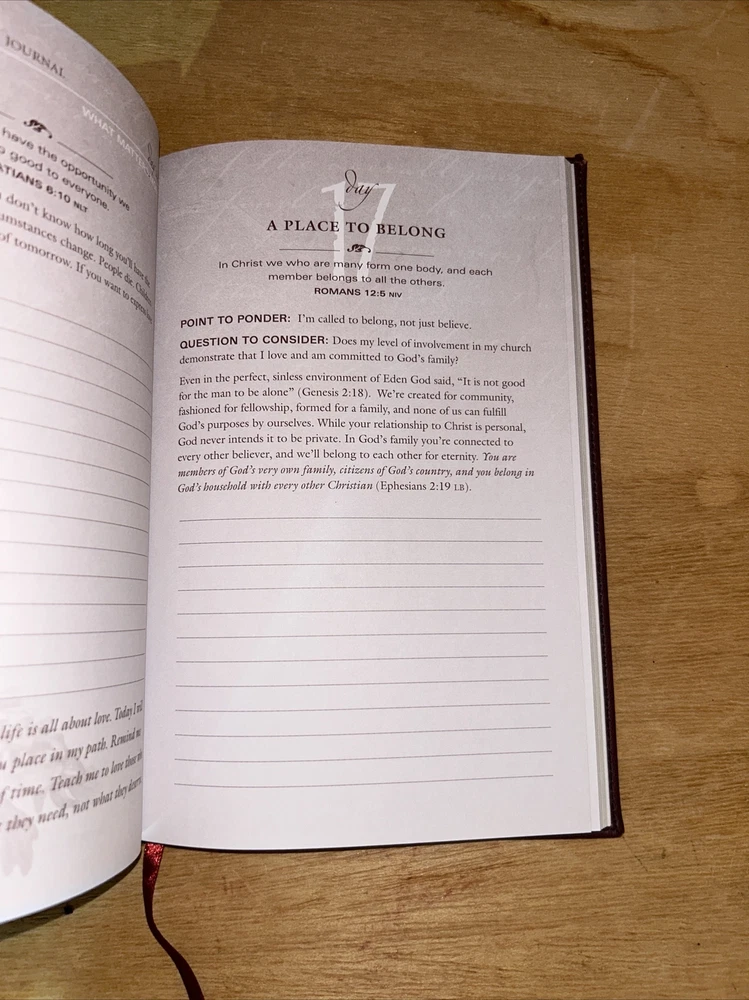 JOURNAL
WHAT
have the opportunity we
good to everyone.
6:10 NLT
don't know how long you'll have
change. People die.
of tomorrow. If you want to
life is all about love. Today I
place in my path. Remind
of time. Teach me to love those
they need, not what they
day
17
A PLACE TO BELONG
In Christ we who are many form one body, and each
member belongs to all the others.
ROMANS 12:5 NIV
POINT TO PONDER: I'm called to belong, not just believe.
QUESTION TO CONSIDER: Does my level of involvement in my church
demonstrate that I love and am committed to God's family?
Even in the perfect, sinless environment of Eden God said, “It is not good
for the man to be alone” (Genesis 2:18). We're created for community,
fashioned for fellowship, formed for a family, and none of us can fulfill
God's purposes by ourselves. While your relationship to Christ is personal,
God never intends it to be private. In God's family you're connected to
every other believer, and we'll belong to each other for eternity. You are
members of God's very own family, citizens of God's country, and you belong in
God's household with every other Christian (Ephesians 2:19 LB).